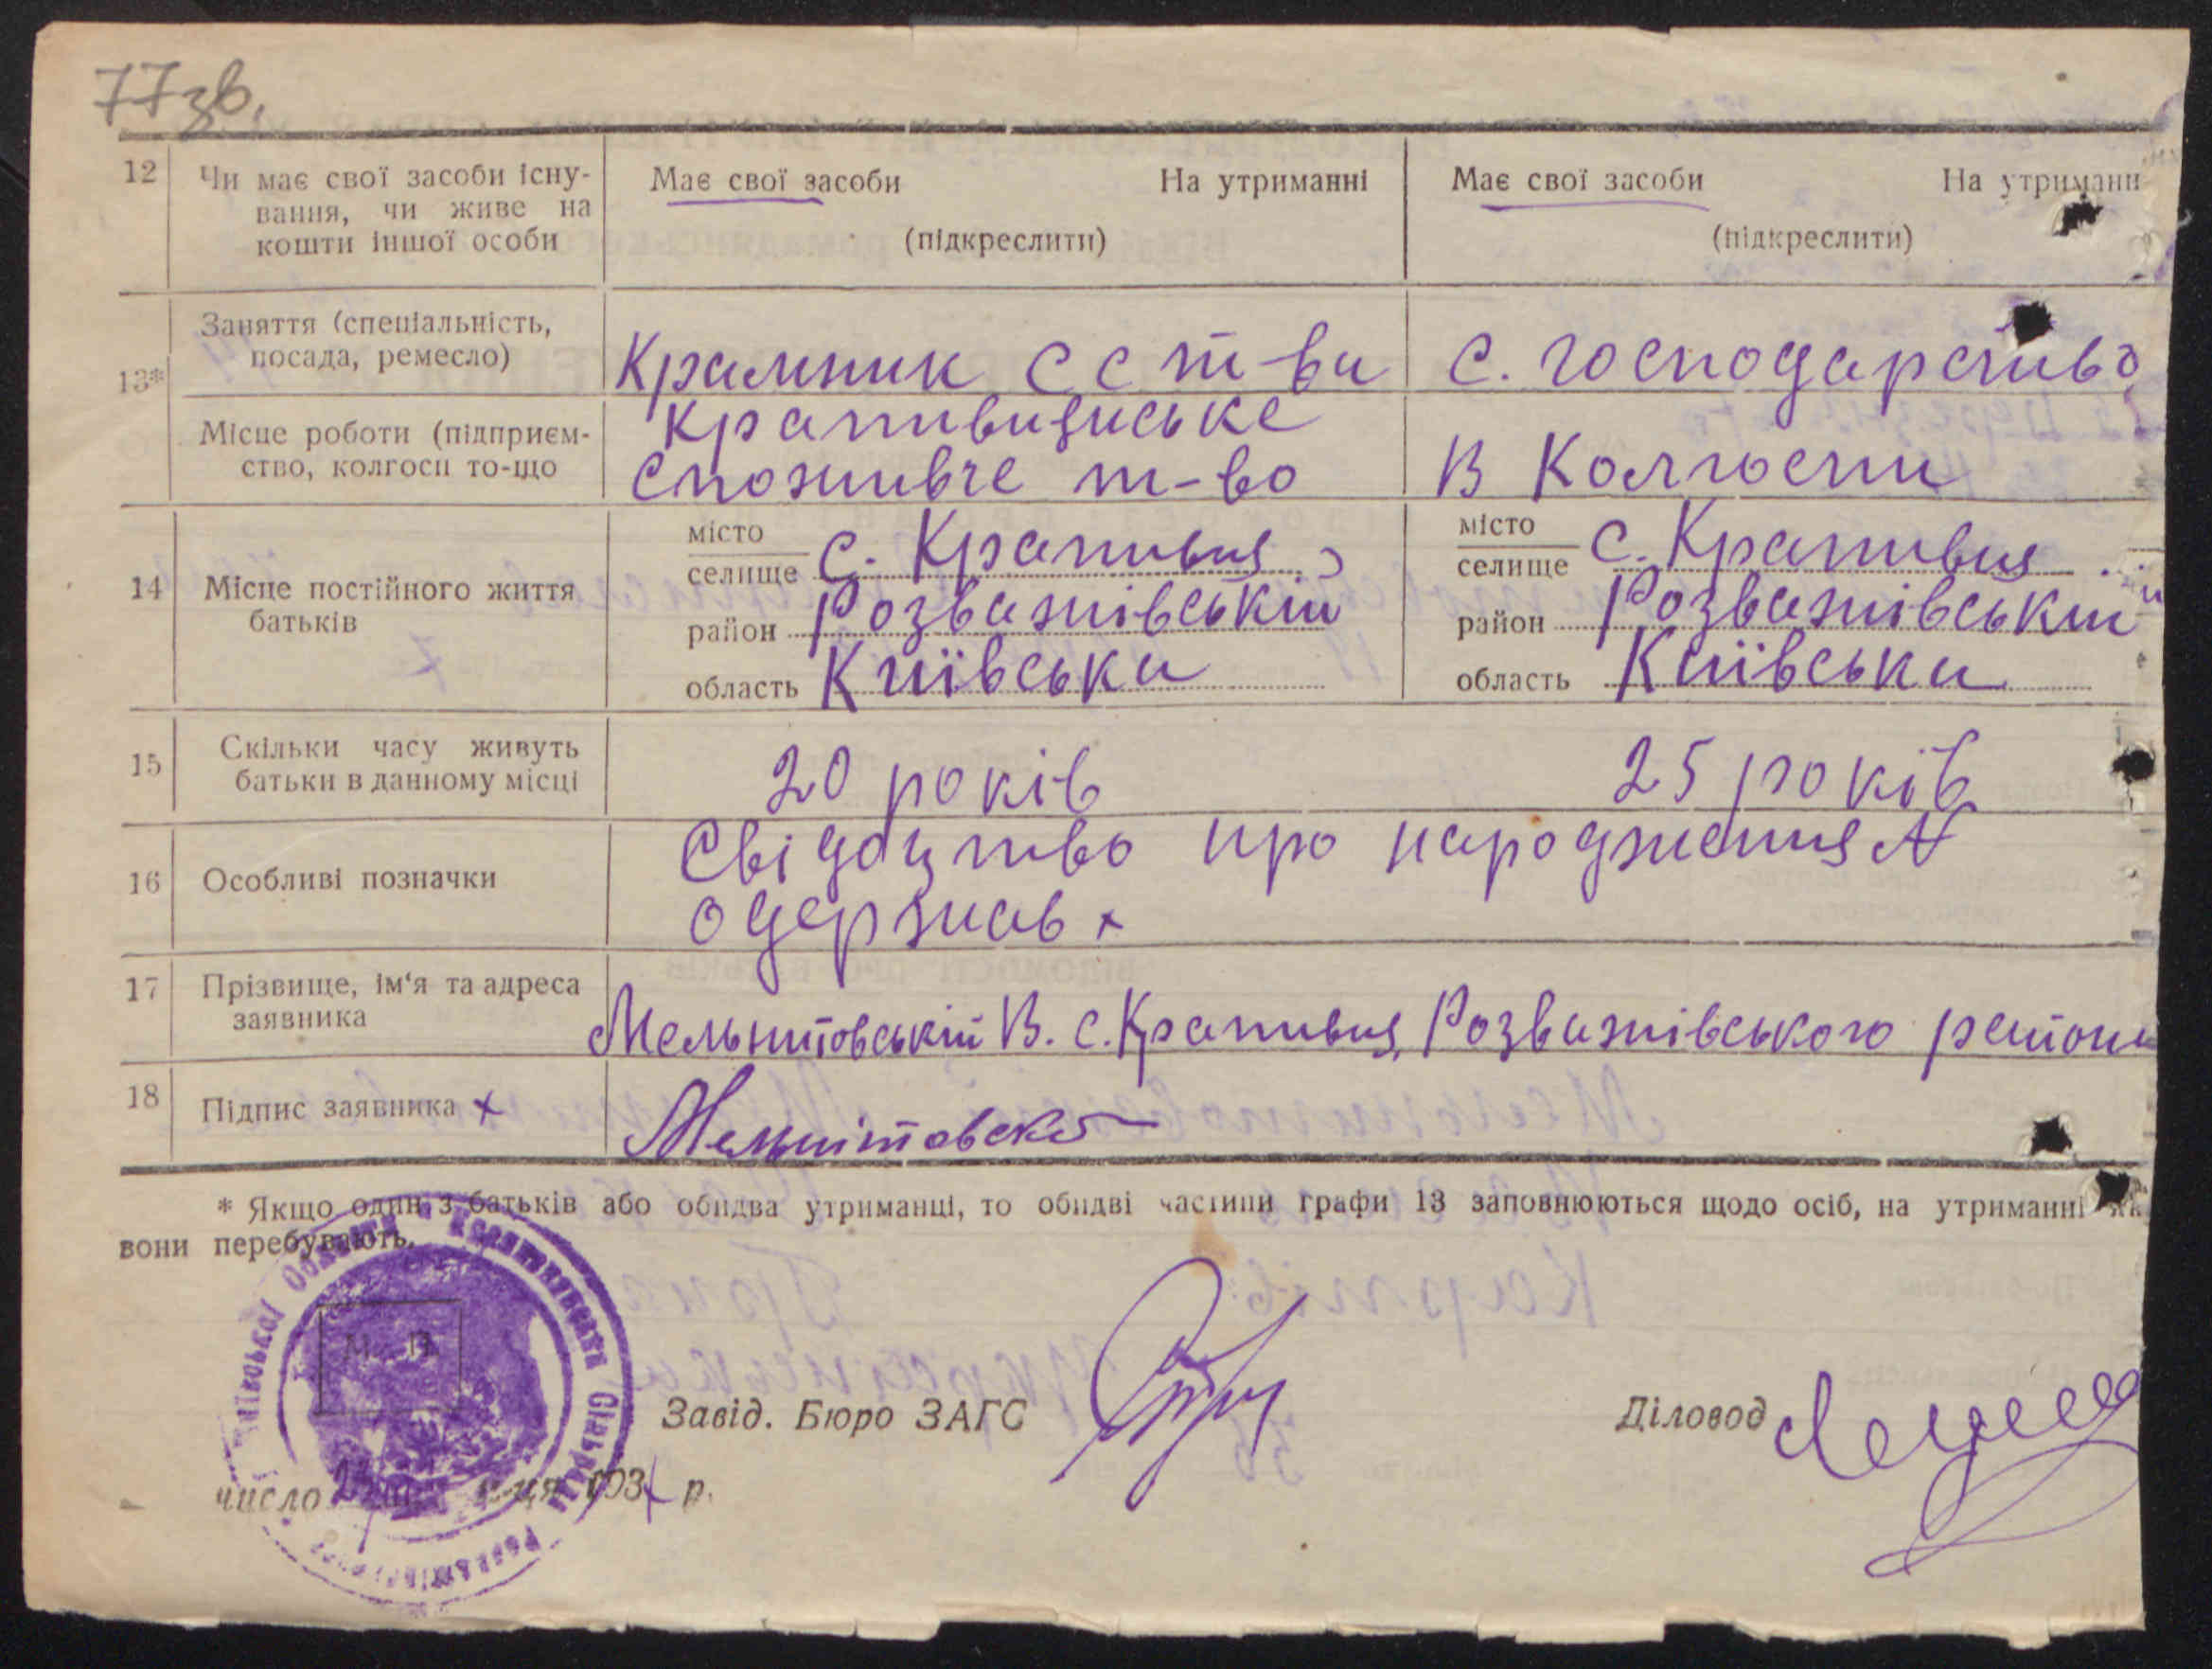 77зв.
12
Чи має свої засоби існу-
вання, чи живе на
кошти іншої особи
Має свої засоби На утриманні
(підкреслити)
Має свої засоби На утриманн
(підкреслити)
13*
Заняття (спеціальність,
посада, ремесло)
Крамник с с т-ва
с. господарство
Місце роботи (підприєм-
ство, колгосп то-що
Крапивнянське
споживче т-во
в Колгоспи
14
Місце постійного життя
батьків
місто
селище с. Крапивня
район Розважівський
область Київська
місто
селище с. Крапивня
район Розважівський
область Київська
15
Скільки часу живуть
батьки в данному місці
20 років
25 років
16
Особливі позначки
Свідоцтво про народження №
одержав х
17
Прізвище, ім'я та адреса
заявника
Мельнитовський В. с. Крапивня, Розважівського района
18
Підпис заявника х
* Якщо один з батьків або обидва утриманці, то обидві частини графи 13 заповнюються щодо осіб, на утриманні як
вони перебувають.
М. П.
Завід. Бюро ЗАГС
Діловод
число 193 р.